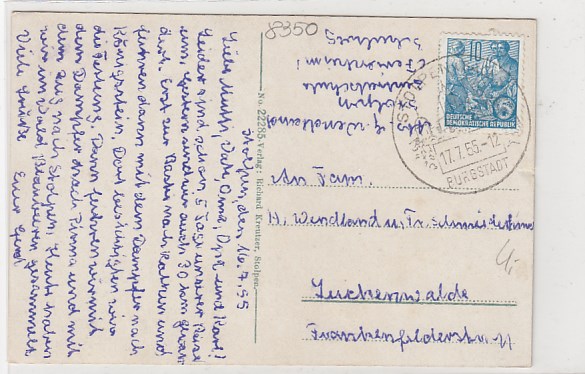 8350
Stolpen, den 16.7.55
Liebe Mutti, Vati, Oma, Opa und Karl!
Leider sind schon 5 Tage unserer Reise
um. Gestern sind wir auch 30 km gewan-
dert. Erst zur Bastei nach Rathen und
fuhren dann mit dem Dampfer nach
Königstein. Dort besichtigten wir
die Festung. Dann fuhren wir mit
dem Dampfer nach Pirna und mit
dem Zug nach Stolpen. Heute waren
wir im Wald, Blaubeeren gesammelt.
Viele Grüße Euer Gerd
No. 22285. Verlag: Richard Kreutzer, Stolpen
Abs. G. Wendland
Stolpen
DEUTSCHE
DEMOKRATISCHE REPUBLIK
10
STOLPEN
17.7.55.-12
BURGSTADT
An Fam.
H. Wendland u. Fr. Schneider
Luckenwalde
Frankenfelderstr. 11
4,-